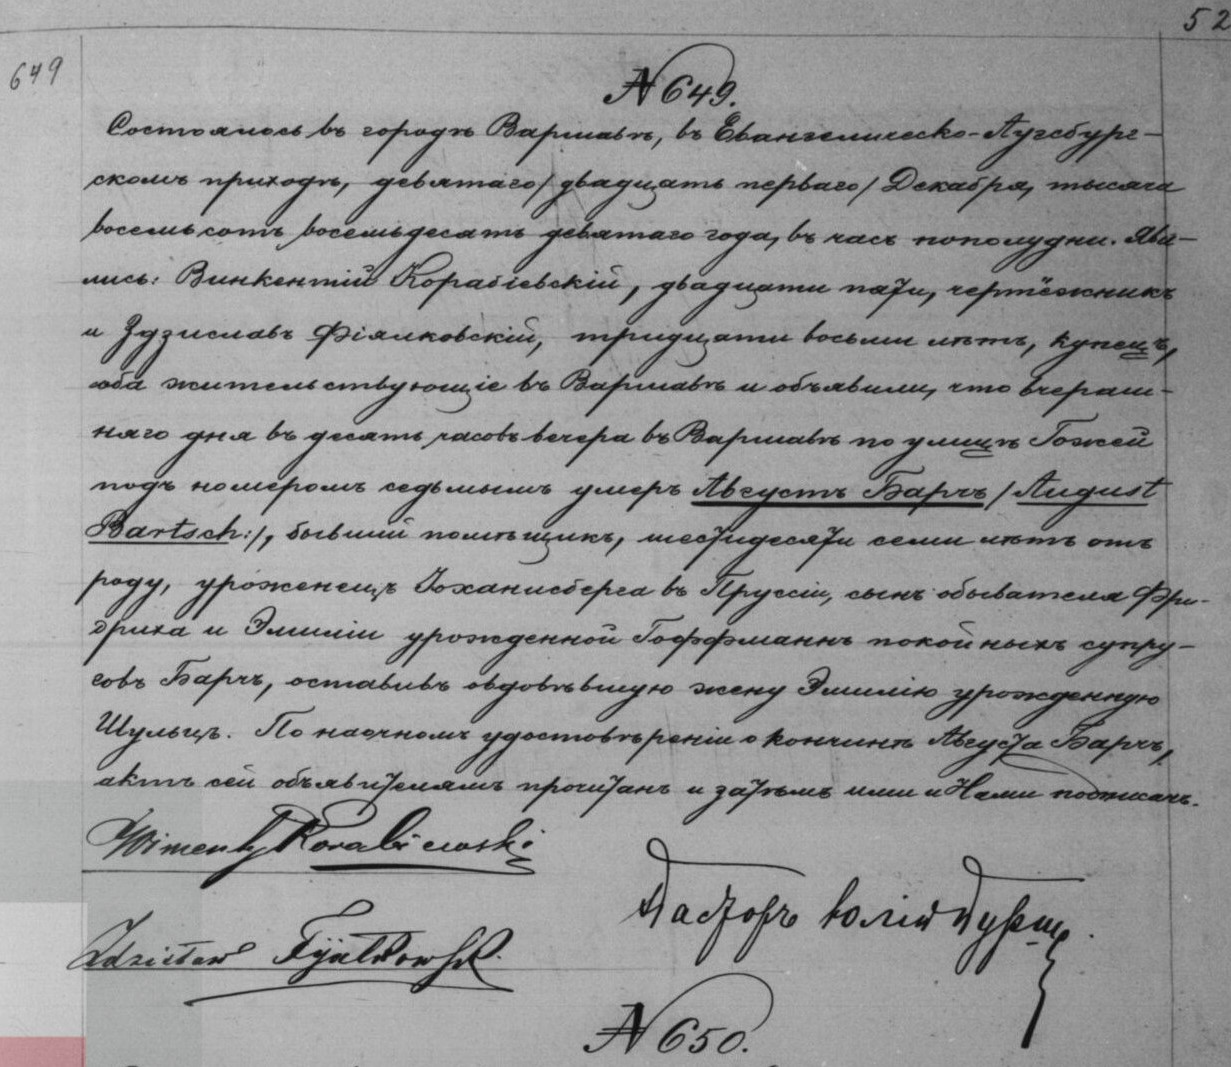 52
649
№ 649.
Состоялось въ городѣ Варшавѣ, въ Евангелическо-Аугсбург-
скомъ приходѣ, девятаго / двадцать перваго / Декабря, тысяча
восемьсотъ восемьдесятъ девятаго года, въ часъ пополудни. Яви-
лись: Винкентій Корабіевскій, двадцати пяти, чертёжникъ
и Здзиславъ Фіялковскій, тридцати восьми лѣтъ, купецъ,
оба жительствующіе въ Варшавѣ и объявили, что вчераш-
няго дня въ десять часовъ вечера въ Варшавѣ по улицѣ Гожей
подъ номеромъ седьмымъ умеръ Августъ Барчъ / August
Bartsch :/, бывшій помѣщикъ, шестидесяти семи лѣтъ отъ
роду, уроженецъ Іоханисберга въ Пруссіи, сынъ обывателя Фри-
дриха и Эмиліи урожденной Гоффманнъ покойныхъ супру-
говъ Барчъ, оставивъ овдовѣвшую жену Эмилію урожденную
Шульцъ. По наочномъ удостовѣреніи о кончинѣ Августа Барчъ,
актъ сей объявителямъ прочитанъ и затѣмъ ими и Нами подписанъ.
Wincenty Korabiewski
Пасторъ Юлій Буршъ.
Zdzisław Fijałkowski.
№ 650.